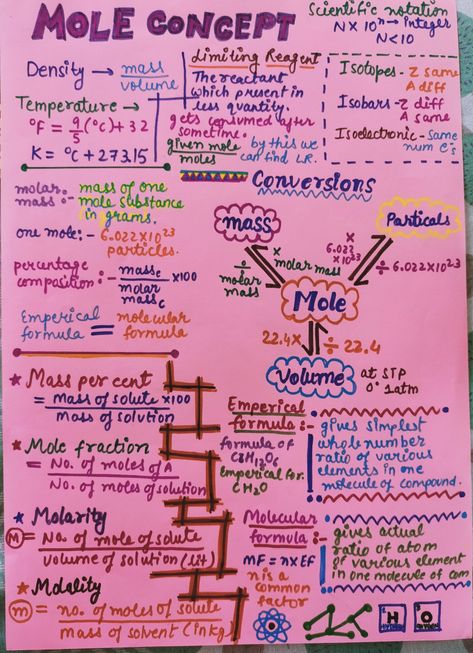 MOLE CONCEPT
Scientific notation
N × 10ⁿ → Integer
N<10
Density → mass
volume
Temperature →
°F = 9/5 (°C) + 32
K = °C + 273.15
Limiting Reagent
The reactant
which present in
less quantity.
gets consumed after
sometime.
given mole
moles
by this we
can find L.R.
Isotopes - Z same
A diff
Isobars - Z diff
A same
Isoelectronic - same
num e⁻s
molar :- mass of one
mass mole substance
in grams.
one mole :- 6.022×10²³
particles.
percentage
composition :- massc × 100
molar
massc
Emperical = molecular
formula formula
Conversions
mass
Particals
×
molar mass
÷
molar
mass
×
6.022
×10²³
÷ 6.022×10²³
Mole
22.4 ×
÷ 22.4
Volume
at STP
0° 1atm
★ Mass per cent
= Mass of solute × 100
Mass of solution
★ Mole fraction
= No. of moles of A
No. of moles of solution
★ Molarity
M = No. of mole of solute
volume of solution (lit)
★ Molality
m = no. of moles of solute
mass of solvent (in kg)
Emperical
formula :-
gives simplest
whole number
ratio of various
elements in one
molecule of compound.
formula of
C₆H₁₂O₆
emperical for.
CH₂O
Molecular
formula :-
gives actual
ratio of atom
of various element
in one molecule of com
MF = n × EF
n is a
common
factor
H
O